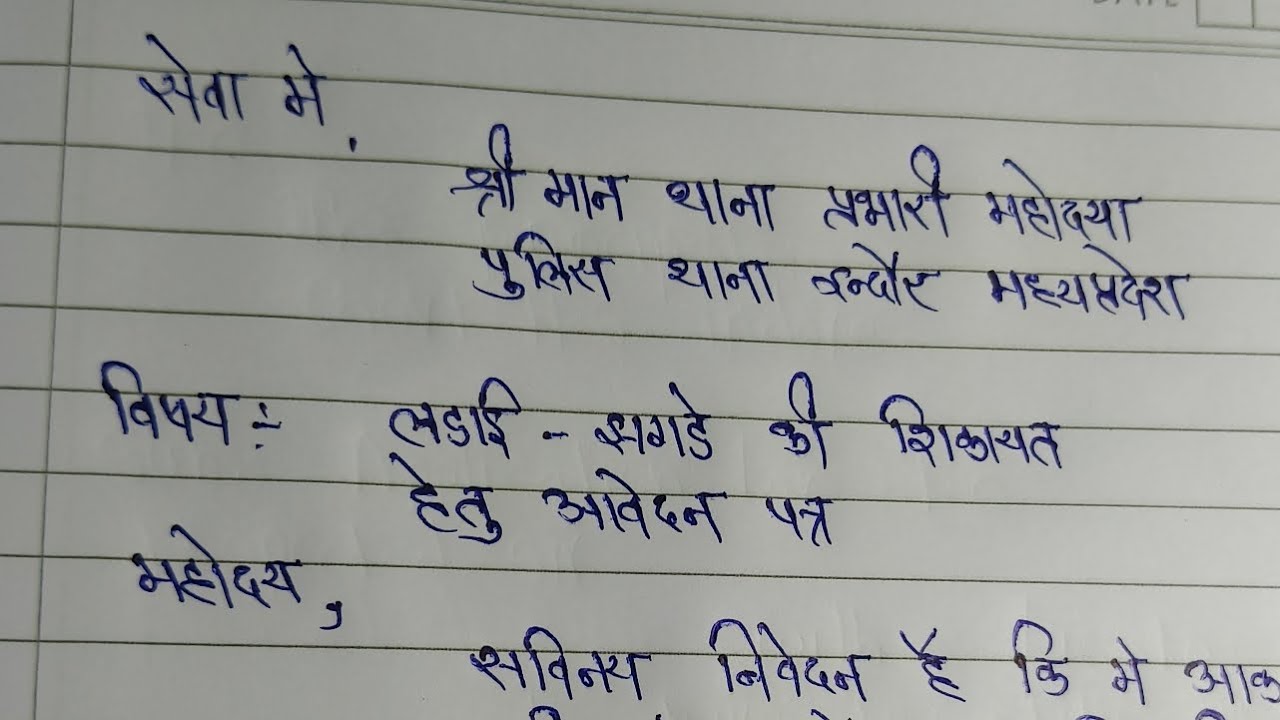 DATE
सेवा मे,
श्री मान थाना प्रभारी महोदया
पुलिस थाना इन्दौर मध्यप्रदेश
विषय:- लडाई - झगडे की शिकायत
हेतु आवेदन पत्र
महोदय,
सविनय निवेदन है कि मे